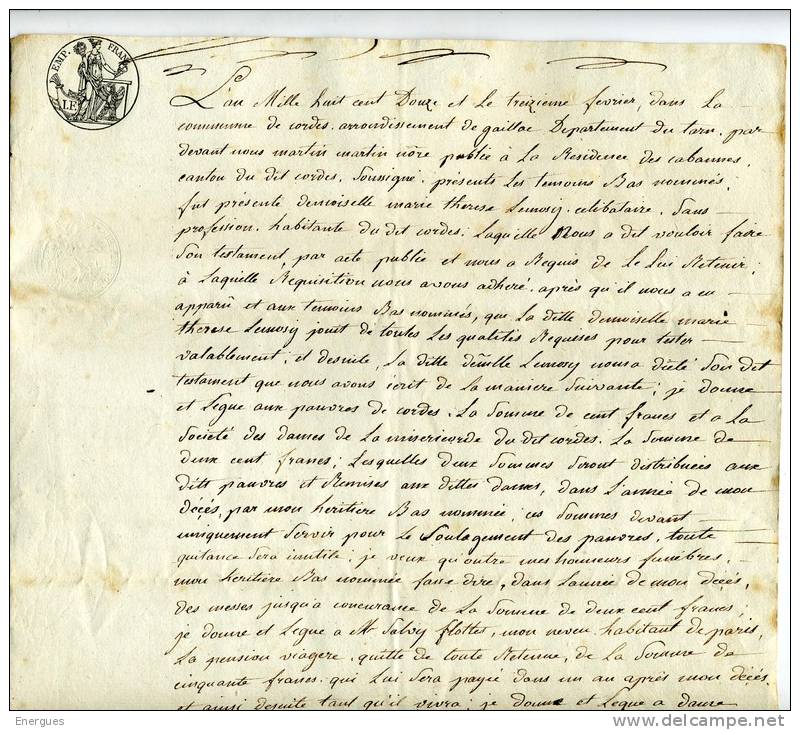 EMP. FRAN.
L'an Mille huit cent Douze et Le treizieme fevrier, dans La
commune de cordes. arrondissement de gaillac Departement du tarn. par
devant nous martin martin nore publie à La Residence des cabannes,
canton du dit cordes. Soussigné. présents Les temoins Bas nommés.
fut présente demoiselle marie therese Lemosy. celibataire. Sans
profession. habitante du dit cordes; Laquelle Nous a dit vouloir faire
Son testament, par acte publie et nous a Requis de Le Lui Retenir;
à Laquelle Requisition nous avons adhéré. après qu'il nous a eu
apparu et aux temoins Bas nommés, que La ditte demoiselle marie
therese Lemosy jouit de toutes Les qualités Requises pour tester
valablement; et desuite, La ditte delle Lemosy nous a dicté Son dit
testament que nous avons écrit de La maniere Suivante; je donne
et Legue aux pauvres de cordes. La Somme de cent francs et a La
Société des dames de La misericorde du dit cordes. La Somme de
deux cent francs; Lesquelles deux Sommes Seront distribuées aux
ditts pauvres et Remises aux dittes dames, dans L'année de mon
décés, par mon heritiere Bas nommée, ces Sommes devant
uniquement Servir pour Le Soulagement des pauvres, toute
quitance Sera inutile; je veux qu'outre mes honneurs funèbres.
mon heritière Bas nommée fasse dire, dans L'année de mon décés,
des messes jusqu'a concurance de La Somme de deux cent francs;
je donne et Legue a Mr Salvy flottes, mon neveu habitant de paris,
La pension viagere quitte de toute Retenue, de La Somme de
cinquante francs. qui Lui Sera payée dans un an après mon décés.
et ainsi desuite tant qu'il vivra; je donne et Legue a dame
Energues
www.delcampe.net